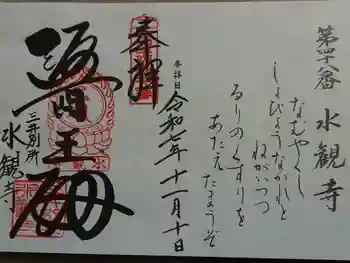 第四十八番 水観寺
なむやくし
しょびょうなかれと
ねがいつつ
るりのくすりを
あたえたまうぞ
参拝日
令和七年十一月十日
奉拝
醫王殿
三井別所
水観寺